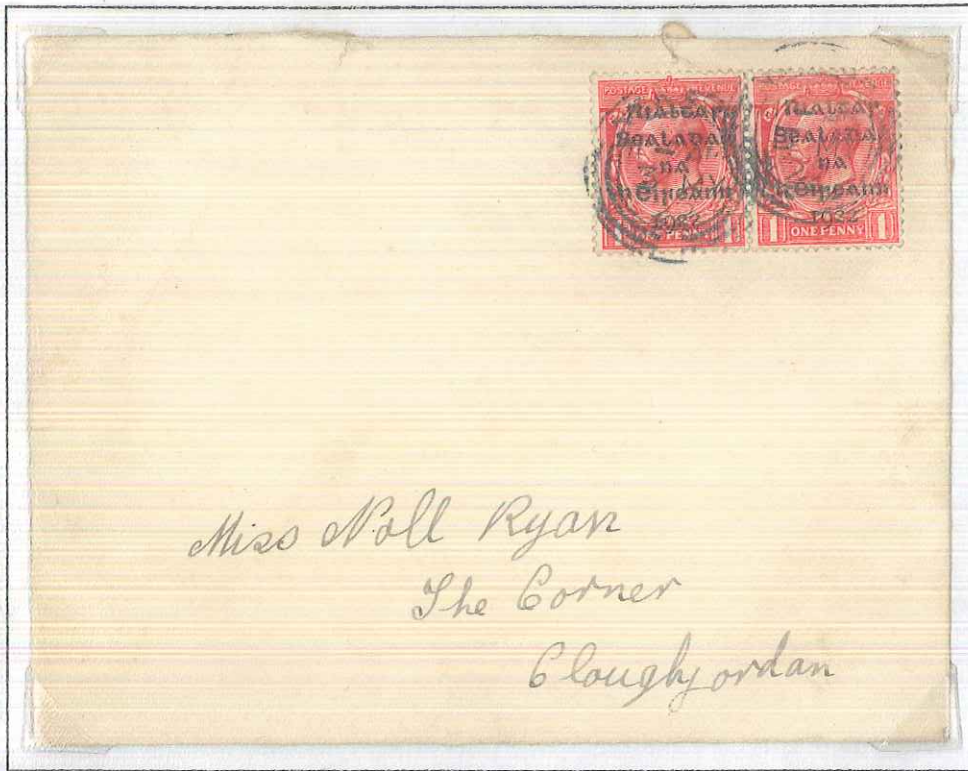 POSTAGE REVENUE
Rialtas
Sealadaċ
na
hÉireann
1922
PENNY
POSTAGE REVENUE
Rialtas
Sealadaċ
na
hÉireann
1922
1 ONE PENNY 1
Miss Noll Ryan
The Corner
Cloughjordan